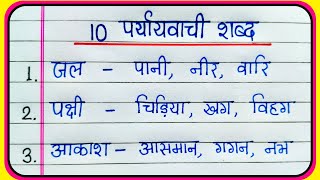 10 पर्यायवाची शब्द
1. जल – पानी, नीर, वारि
2. पक्षी – चिड़िया, खग, विहग
3. आकाश – आसमान, गगन, नभ